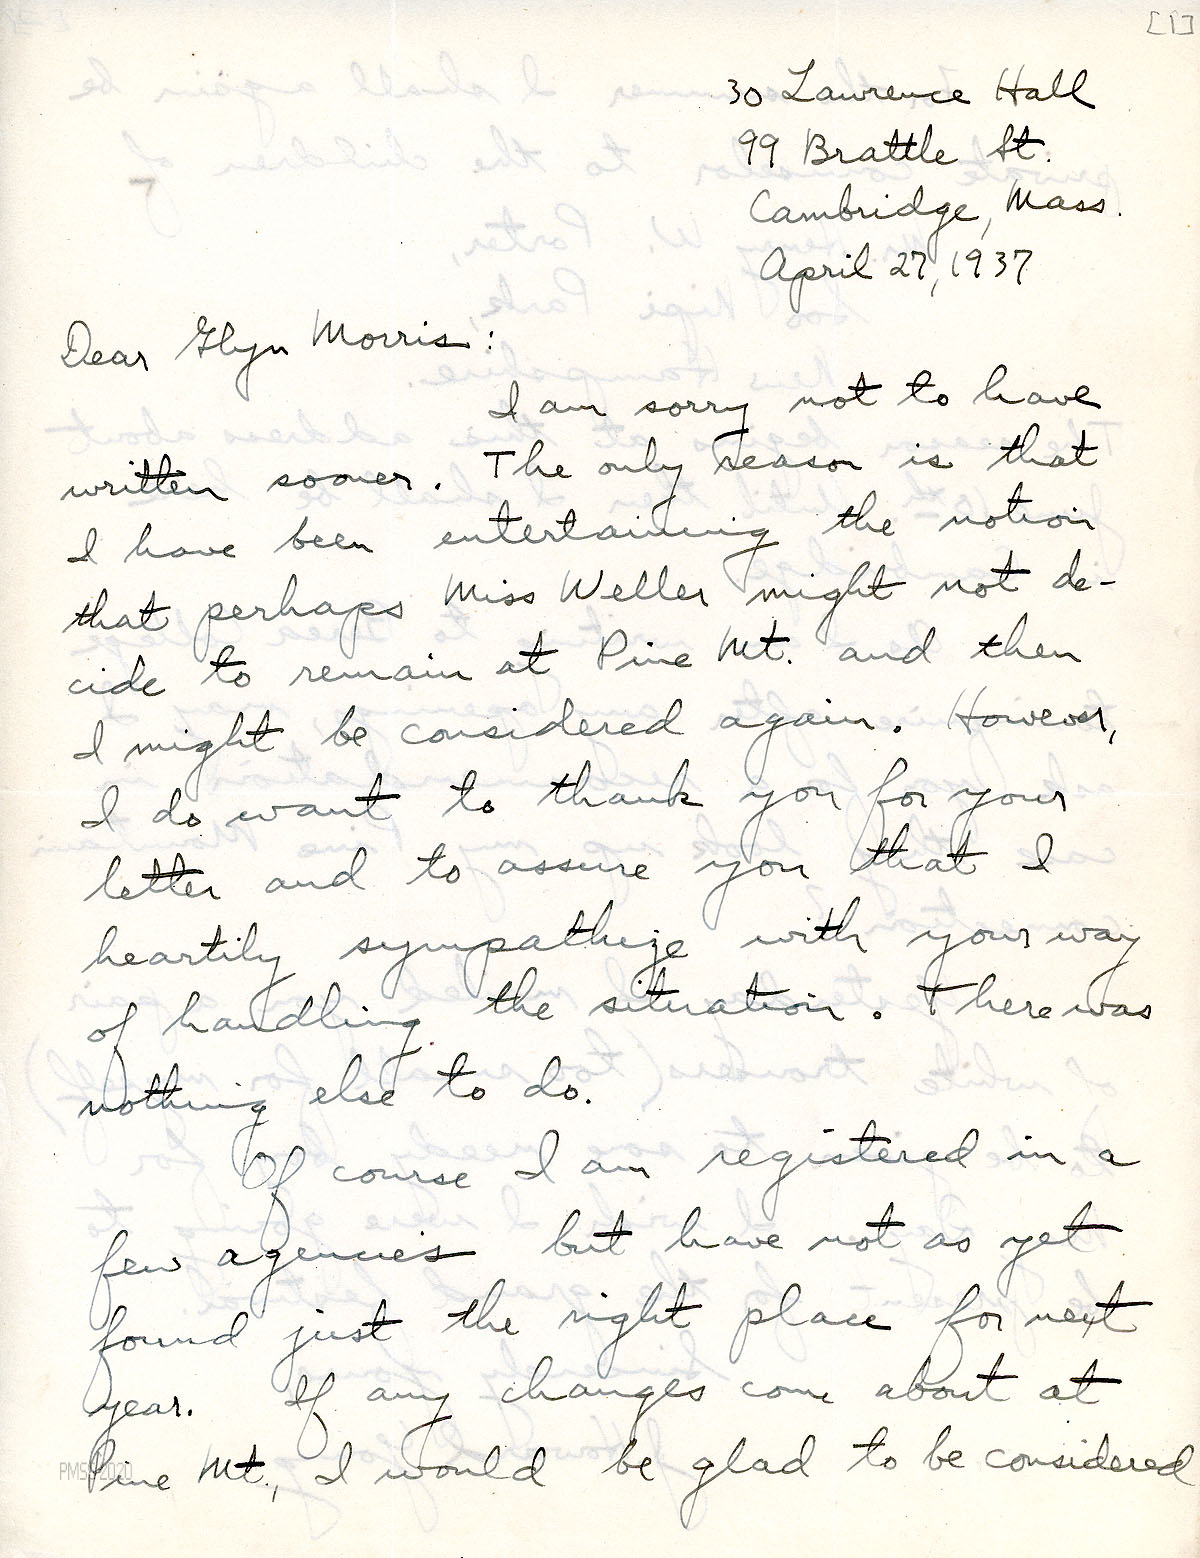 [1]
30 Lawrence Hall
99 Brattle St.
Cambridge, Mass.
April 27, 1937
Dear Glyn Morris:
I am sorry not to have
written sooner. The only reason is that
I have been entertaining the notion
that perhaps Miss Weller might not de-
cide to remain at Pine Mt. and then
I might be considered again. However,
I do want to thank you for your
letter and to assure you that I
heartily sympathize with your way
of handling the situation. There was
nothing else to do.
Of course I am registered in a
few agencies but have not as yet
found just the right place for next
year. If any changes come about at
Pine Mt., I would be glad to be considered
PMSS 2020